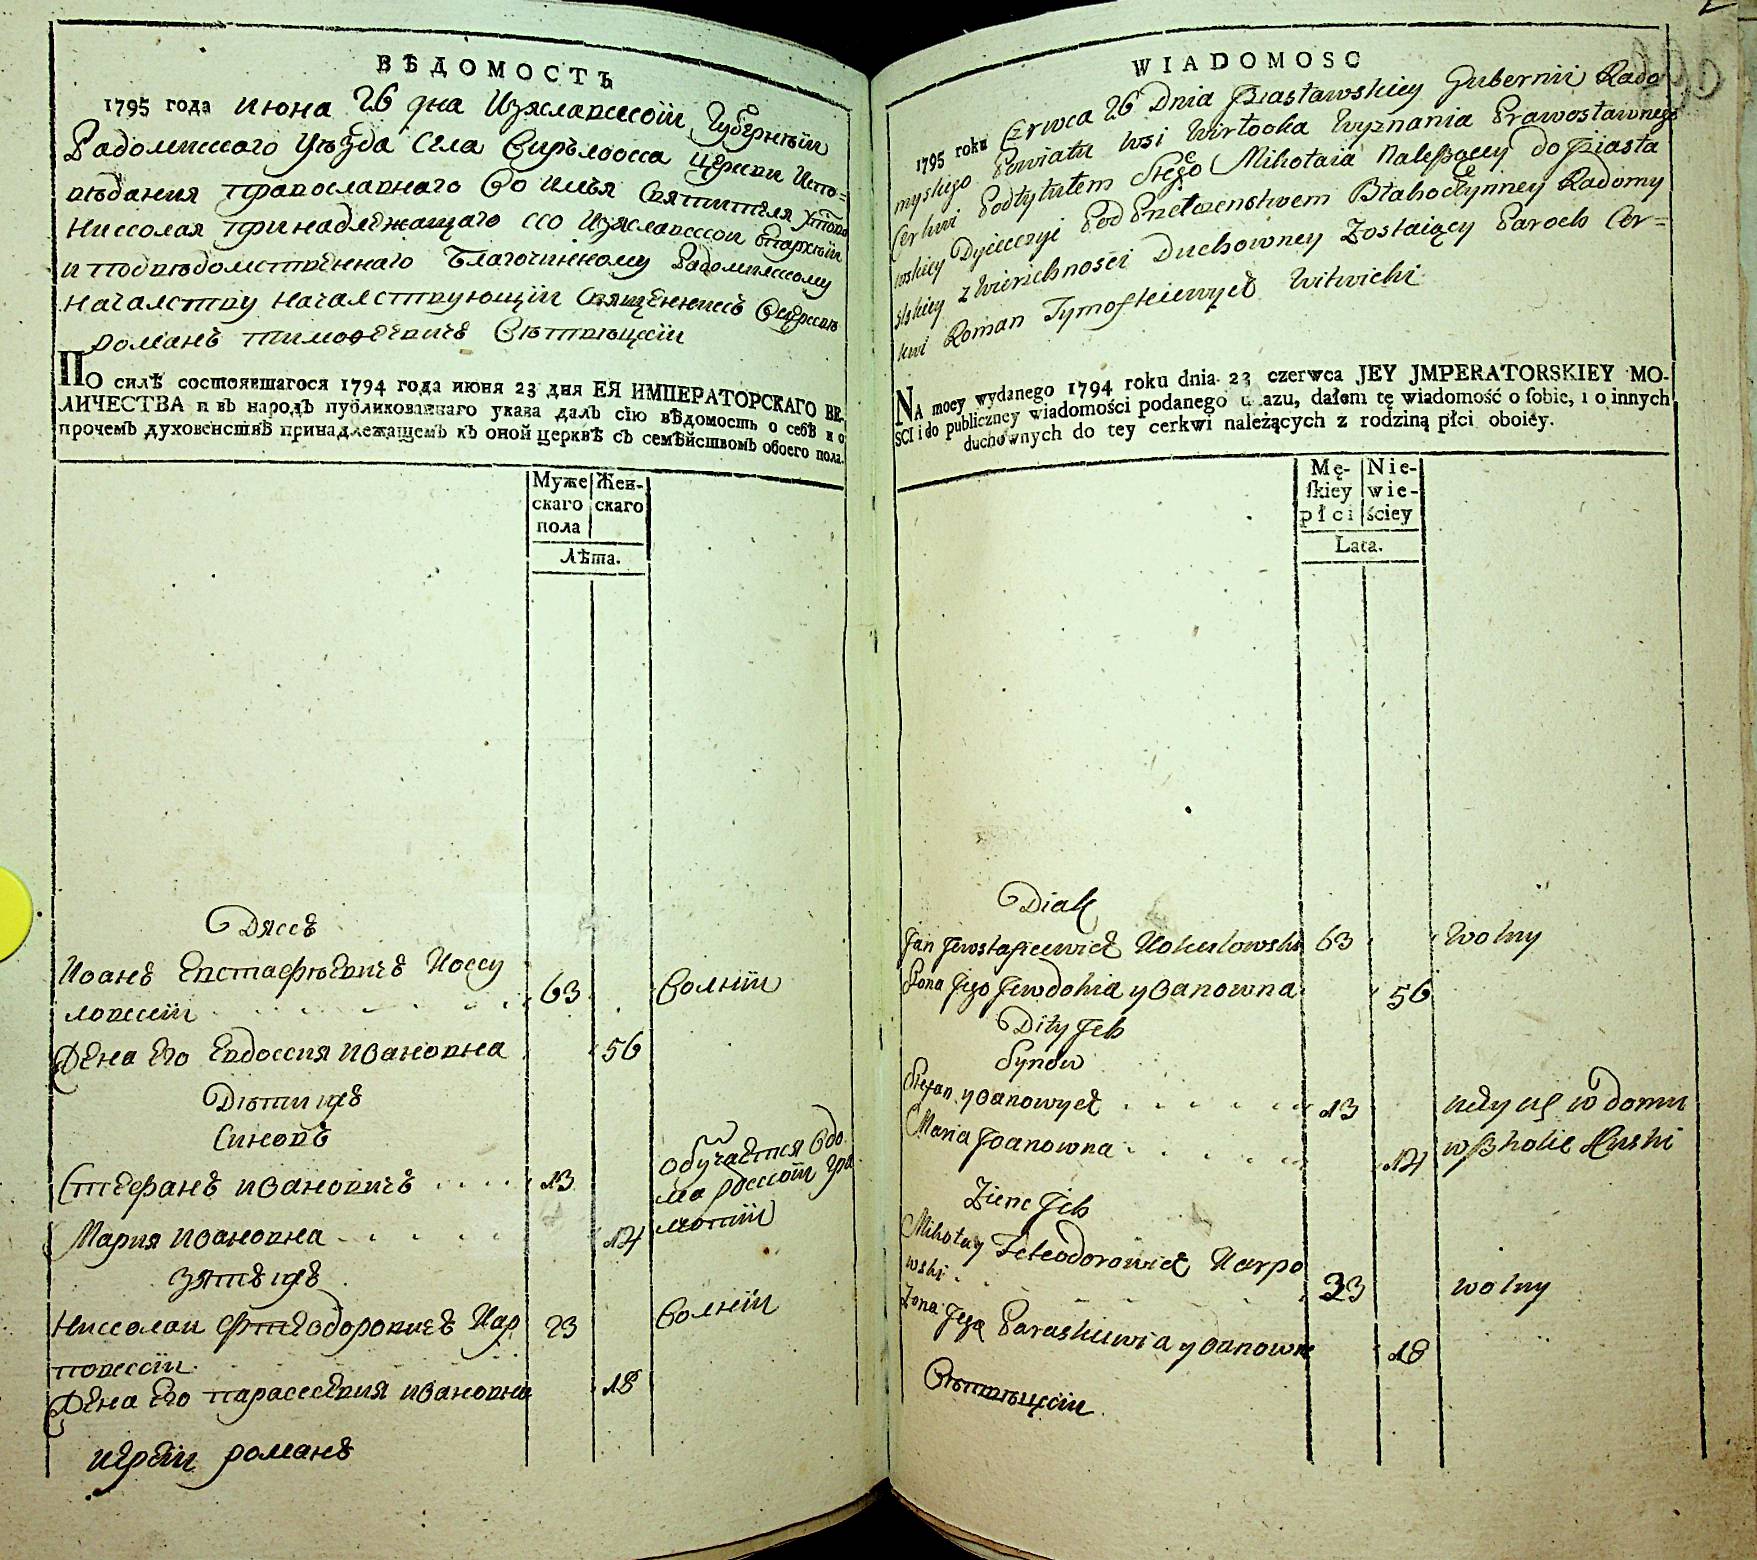 ВѢДОМОСТЬ
1795 года июна 26 дна Изяславской Губернѣии
Радомисского Уѣзда Села Вирълоока Церкви Испо=
вѣдания православнаго во имья Святителя Христова
Николая принадлежащаго ко Изяславской Епархѣии
и подвѣдомственнаго Благочинному Радомислскому
началству началствующїи Священникъ Вирвскъ
романъ тимофеевичъ Вѣтвѣцкїи
ПО силѣ состоявшагося 1794 года июня 23 дня ЕЯ ИМПЕРАТОРСКАГО ВЕ-
ЛИЧЕСТВА и въ народъ публикованнаго указа далъ сїю вѣдомость о себѣ и о
прочемъ духовенствѣ принадлежащемъ къ оной церквѣ съ семѣйствомъ обоего пола.
Муже Жен-
скаго скаго
пола
Лѣта.
Дякъ
Иоанъ Евстафѣевичъ Коку
ловскїи 63 Волнїи
Жена Его Евдокия ивановна 56
Дѣти ихъ
Синовъ
Стефанъ ивановичъ 13 обучается Вдо
ма рускои гра
мотїи
Мария ивановна 14
зять ихъ
Николаи Фтеодоровичъ Кар 23 Волнїи
повскїи
Жена Его параскевия ивановна 18
иерѣи романъ
WIADOMOSC
1795 roku Czrwca 26 Dnia Zasławskiey Gubernii Rado
myskego Powiatu wsi Wirłooka Wyznania Prawosławnego
Cerkwi Podtytułem Stego Mikołaia Należącey do Zasła
wskiey Dyiecezyi Pod Przełozenstwem Błahoczynney Radomy
slskiey z Wierzchności Duchowney Zostaiący Paroch Cer=
kwi Roman Tymofteiewycz Witwicki
NA mocy wydanego 1794 roku dnia 23 czerwca JEY JMPERATORSKIEY MO-
SCI i do publiczney wiadomości podanego ukazu, dałem tę wiadomość o sobie, i o innych
duchownych do tey cerkwi należących z rodziną płci oboiey.
Mę- Nie-
skiey wie-
płci ściey
Lata.
Diak
Jan Jewstafiewicz Kokulowski 63 wolny
Żona Jego Jewdokia yoanowna 56
Dity Jch
Synów
Stefan yoanowycz 13 uczy się w domu
Maria Joanowna 14 w Szkolie Ruski
Zienc Jch
Mikołay Fcteodorowicz Karpo
wski 33 wolny
Zona Jego Paraskiewia yoanown 18
Вѣтвѣцкїи